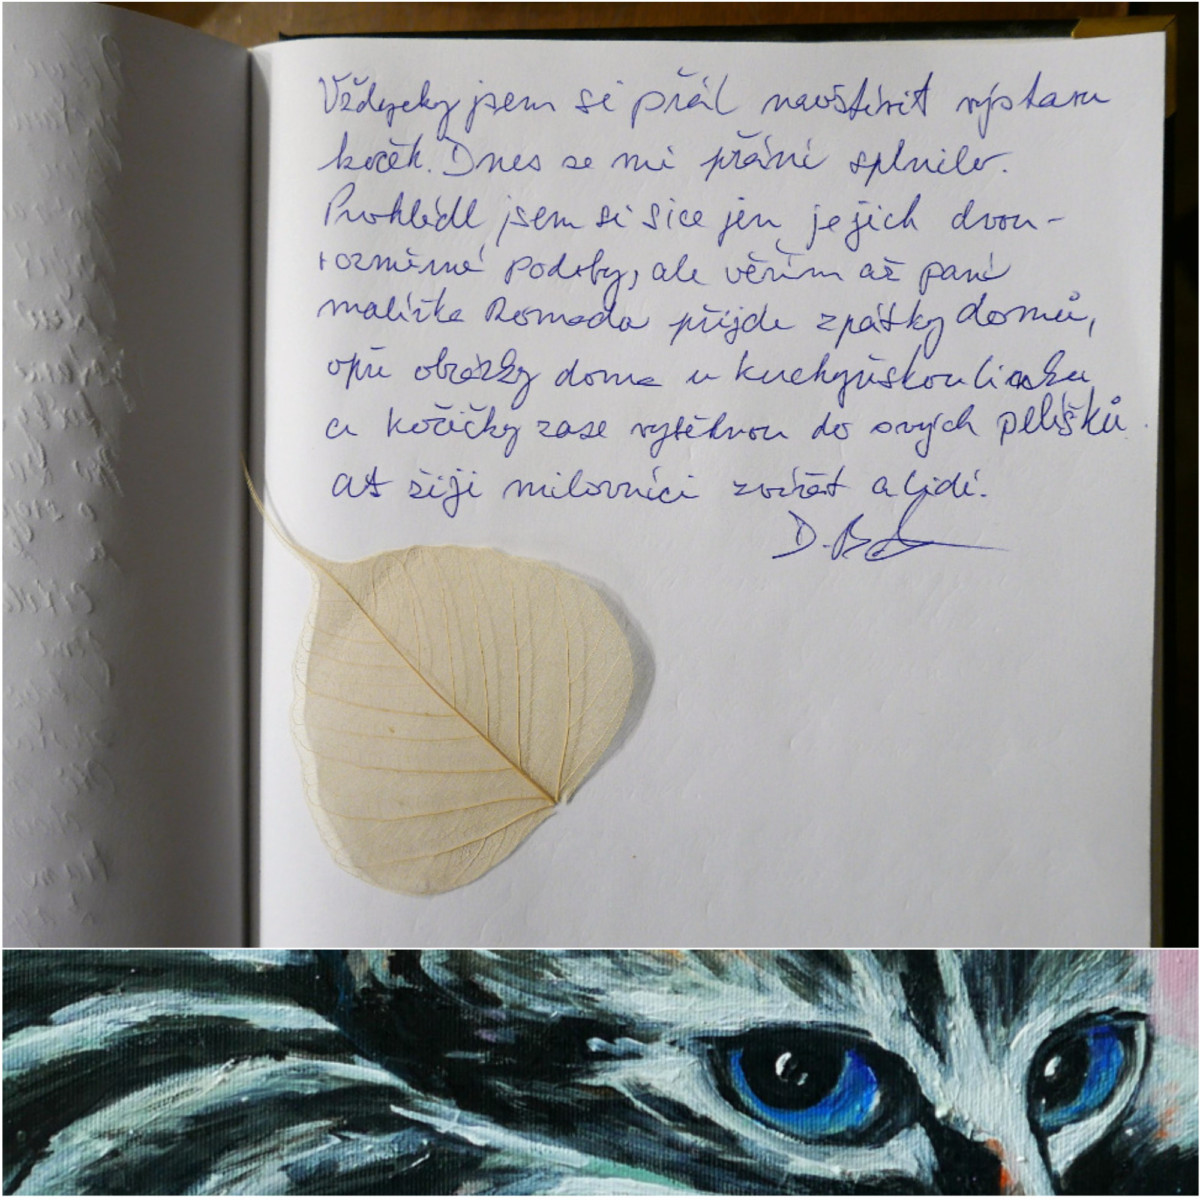 Vždycky jsem si přál navštívit výstavu
koček. Dnes se mi přání splnilo.
Prohlédl jsem si sice jen jejich dvou-
rozměrné podoby, ale věřím až paní
malířka Romada přijde zpátky domů,
opře obrázky doma u kuchyňskou linku
a kočičky zase vyběhnou do svých pelíšků.
Ať žijí milovníci zvířat a lidí.